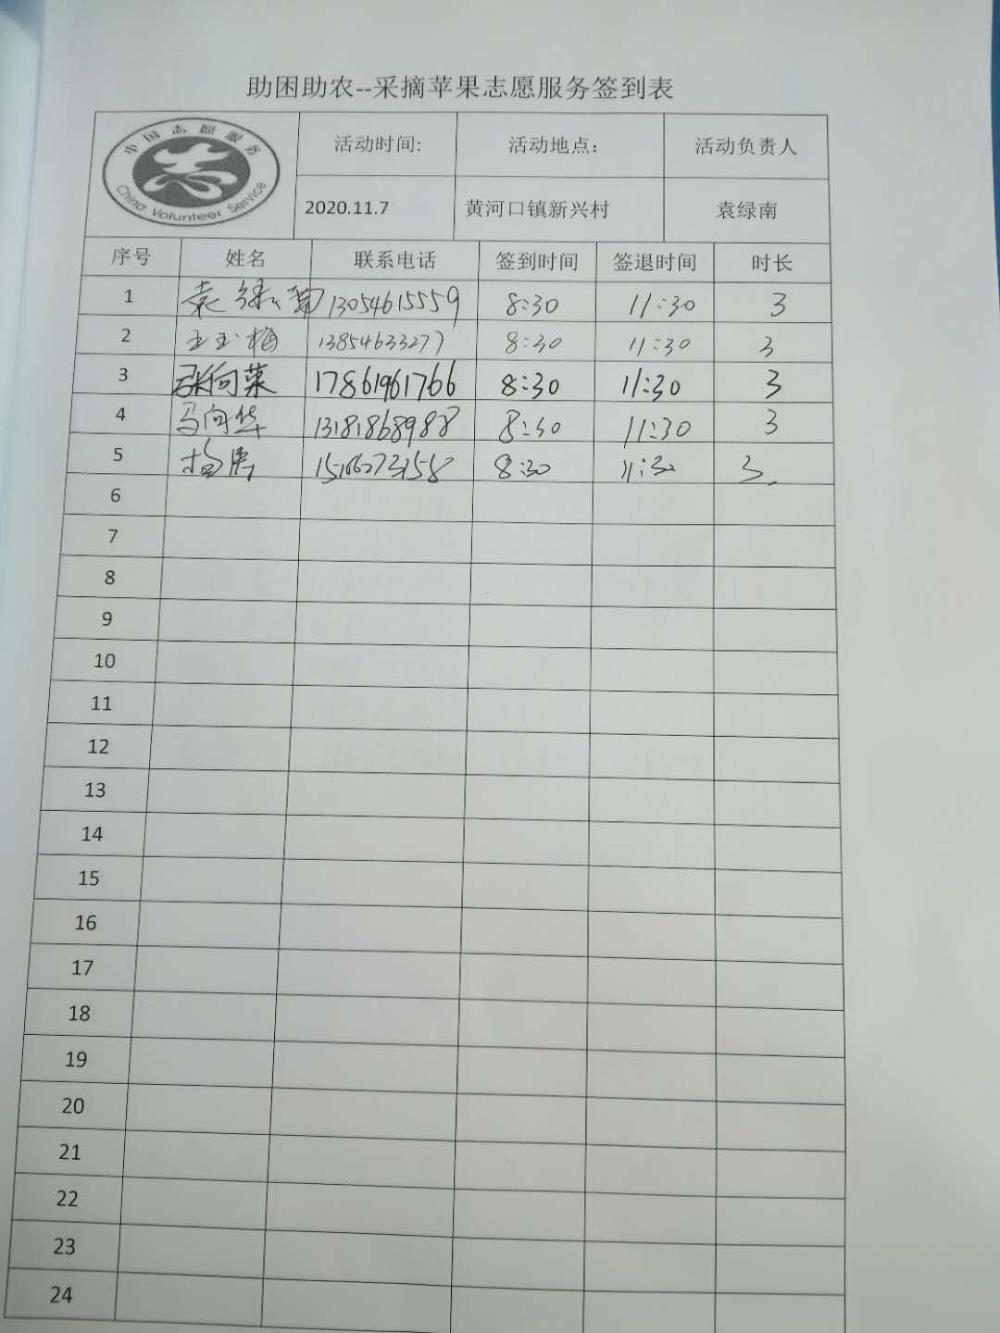 助困助农--采摘苹果志愿服务签到表
中国志愿服务
China Volunteer Service
活动时间: 活动地点: 活动负责人
2020.11.7 黄河口镇新兴村 袁绿南
序号 姓名 联系电话 签到时间 签退时间 时长
1 袁绿南 13054615559 8:30 11:30 3
2 王玉梅 13854633277 8:30 11:30 3
3 张向菜 17861961766 8:30 11:30 3
4 马向华 13181868988 8:30 11:30 3
5 8:30 11:30 3
6
7
8
9
10
11
12
13
14
15
16
17
18
19
20
21
22
23
24